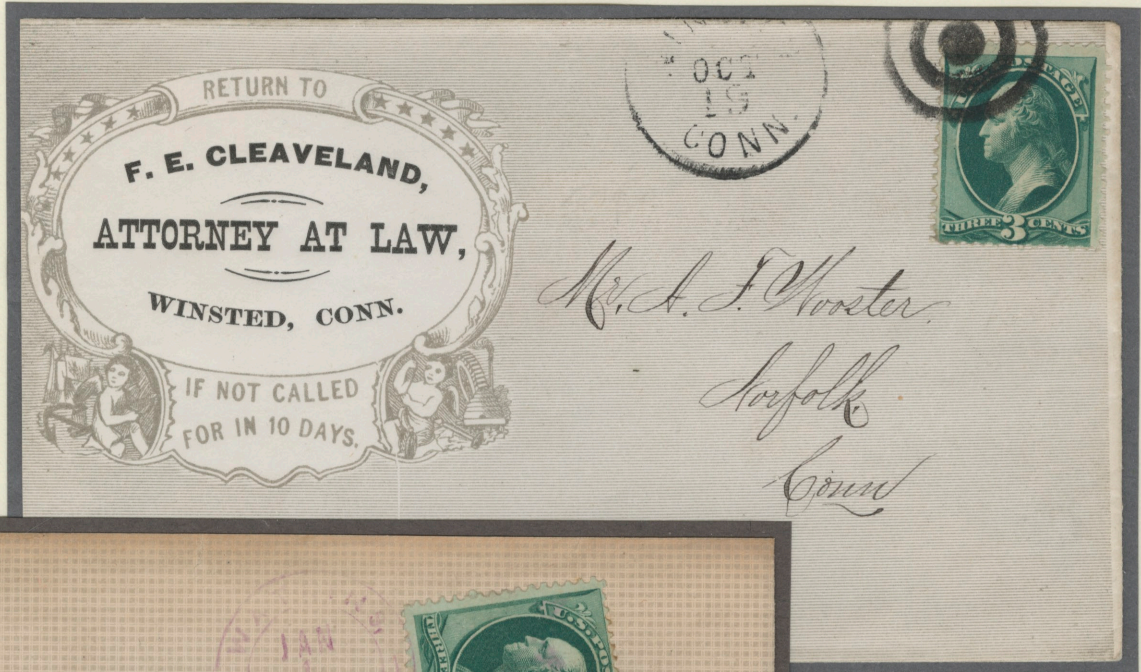 RETURN TO
F. E. CLEAVELAND,
ATTORNEY AT LAW,
WINSTED, CONN.
IF NOT CALLED
FOR IN 10 DAYS.
OCT
19
CONN.
POSTAGE
THREE 3 CENTS
Mr. A. F. Wooster.
Norfolk.
Conn
JAN
U.S. POS
THREE